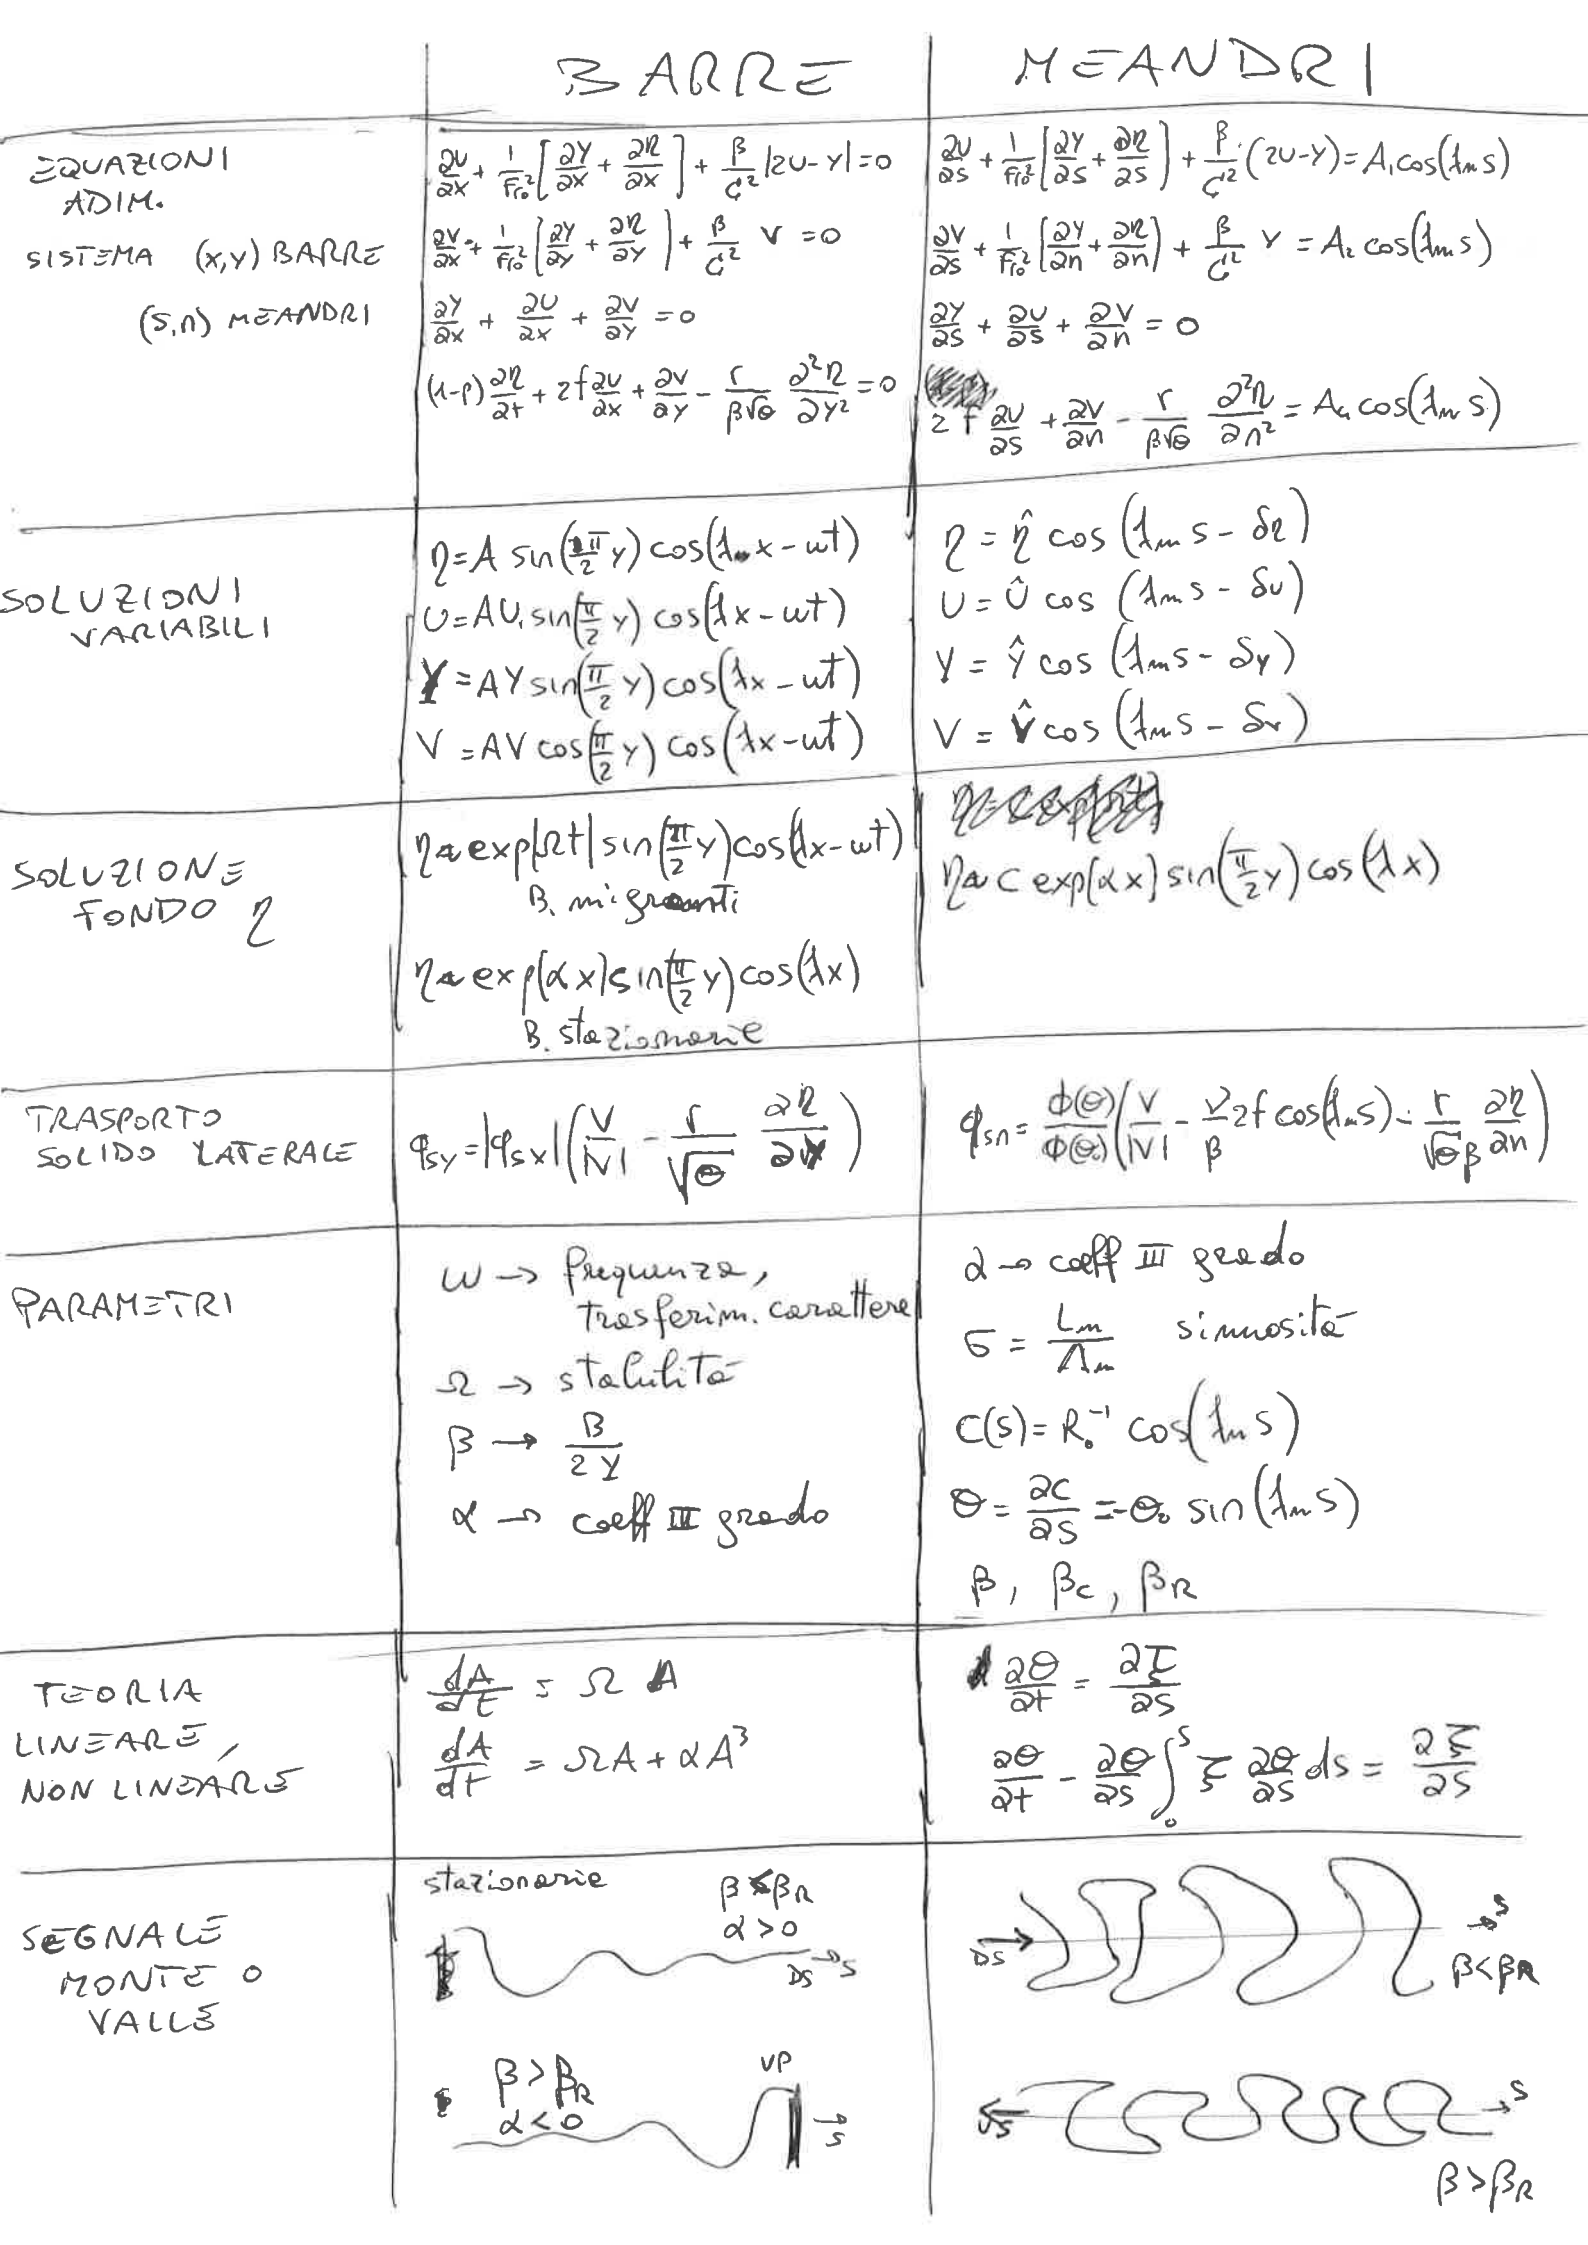 BARRE
MEANDRI
EQUAZIONI
ADIM.
SISTEMA (x,y) BARRE
(s,n) MEANDRI
∂U/∂x + 1/Fr₀² [∂Y/∂x + ∂η/∂x] + β/C² |2U-Y| = 0
∂V/∂x + 1/Fr₀² [∂Y/∂y + ∂η/∂y] + β/C² V = 0
∂Y/∂x + ∂U/∂x + ∂V/∂y = 0
(1-p) ∂η/∂t + 2f ∂U/∂x + ∂V/∂y - r/(β√θ) ∂²η/∂y² = 0
∂U/∂s + 1/Fr₀² [∂Y/∂s + ∂η/∂s] + β/C² (2U-Y) = A₁ cos(λm s)
∂V/∂s + 1/Fr₀² [∂Y/∂n + ∂η/∂n] + β/C² V = A₂ cos(λm s)
∂Y/∂s + ∂U/∂s + ∂V/∂n = 0
2f ∂U/∂s + ∂V/∂n - r/(β√θ) ∂²η/∂n² = A₄ cos(λm s)
SOLUZIONI
VARIABILI
η = A sin(π/2 y) cos(λx - ωt)
U = AU₁ sin(π/2 y) cos(λx - ωt)
Y = AY sin(π/2 y) cos(λx - ωt)
V = AV cos(π/2 y) cos(λx - ωt)
η = η̂ cos (λm s - δη)
U = Û cos (λm s - δu)
Y = Ŷ cos (λm s - δy)
V = V̂ cos (λm s - δv)
SOLUZIONE
FONDO η
η ∝ exp|Ωt| sin(π/2 y) cos(λx - ωt)
B. migranti
η ∝ exp(αx) sin(π/2 y) cos(λx)
B. stazionarie
η ∝ C exp(αx) sin(π/2 y) cos(λx)
TRASPORTO
SOLIDO LATERALE
qsy = |qsx| (V/|V| - r/√θ ∂η/∂y)
qsn = ϕ(θ)/ϕ(θ₀) (V/|V| - ν/β 2f cos(λm s) - r/(√θ β) ∂η/∂n)
PARAMETRI
ω → frequenza,
trasferim. carattere
Ω → stabilità
β → B/2Y
α → coeff III grado
α → coeff III grado
σ = Lm/Λm sinuosità
C(s) = R₀⁻¹ cos(λm s)
θ = ∂C/∂s = -θ₀ sin(λm s)
β, βc, βR
TEORIA
LINEARE,
NON LINEARE
dA/dt = Ω A
dA/dt = ΩA + αA³
∂θ/∂t = ∂ξ/∂s
∂θ/∂t - ∂θ/∂s ∫₀ˢ ξ ∂θ/∂s ds = ∂ξ/∂s
SEGNALE
MONTE O
VALLE
stazionarie
β < βR
α > 0
DS → s
β > βR
α < 0
UP
→ s
DS → s
β < βR
US s
β > βR